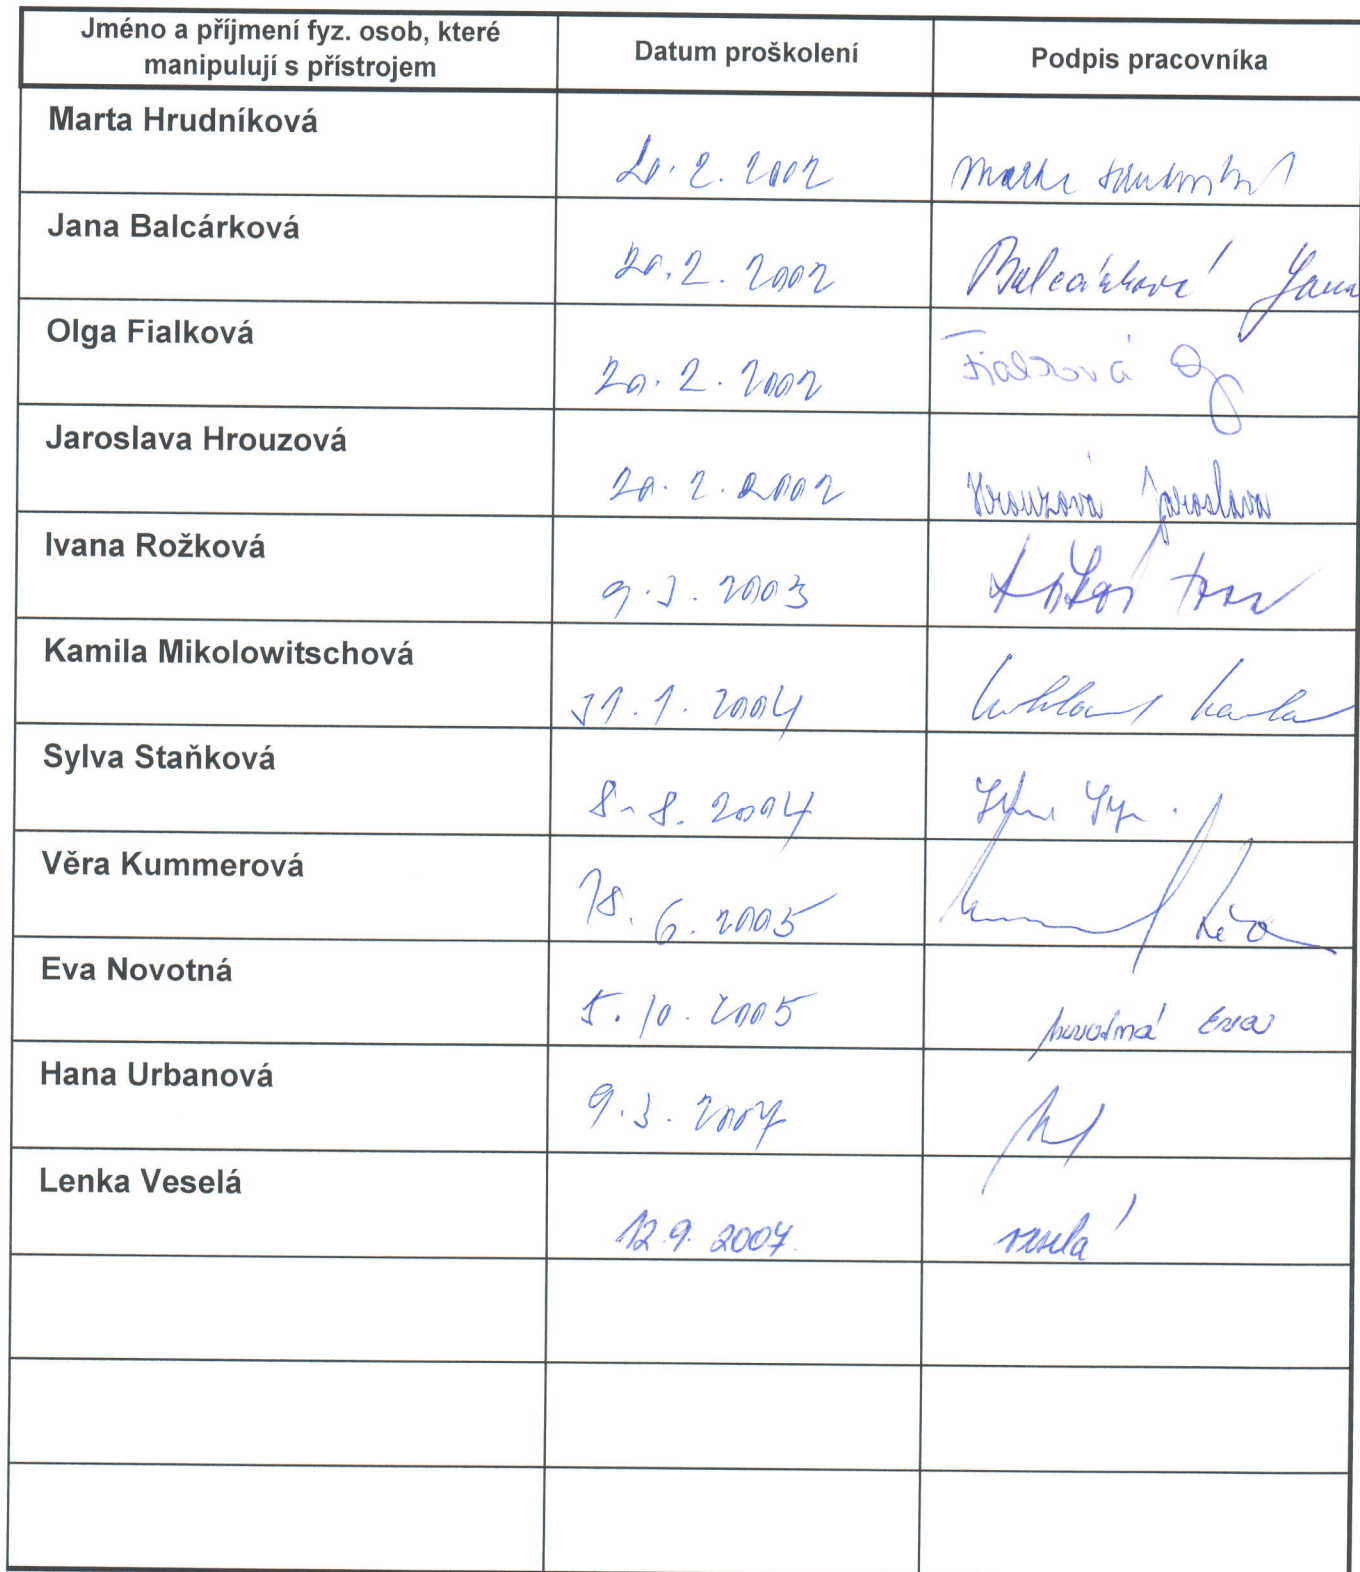 Jméno a příjmení fyz. osob, které
manipulují s přístrojem
Datum proškolení
Podpis pracovníka
Marta Hrudníková
20. 2. 2002
Jana Balcárková
20. 2. 2002
Balcárková Jana
Olga Fialková
20. 2. 2002
Fialková
Jaroslava Hrouzová
20. 2. 2002
Hrouzová Jaroslava
Ivana Rožková
9. 3. 2003
Kamila Mikolowitschová
31. 1. 2004
Sylva Staňková
8. 8. 2004
Věra Kummerová
18. 6. 2005
Věra
Eva Novotná
5. 10. 2005
Novotná Eva
Hana Urbanová
9. 3. 2007
Lenka Veselá
12.9. 2007.
Veselá